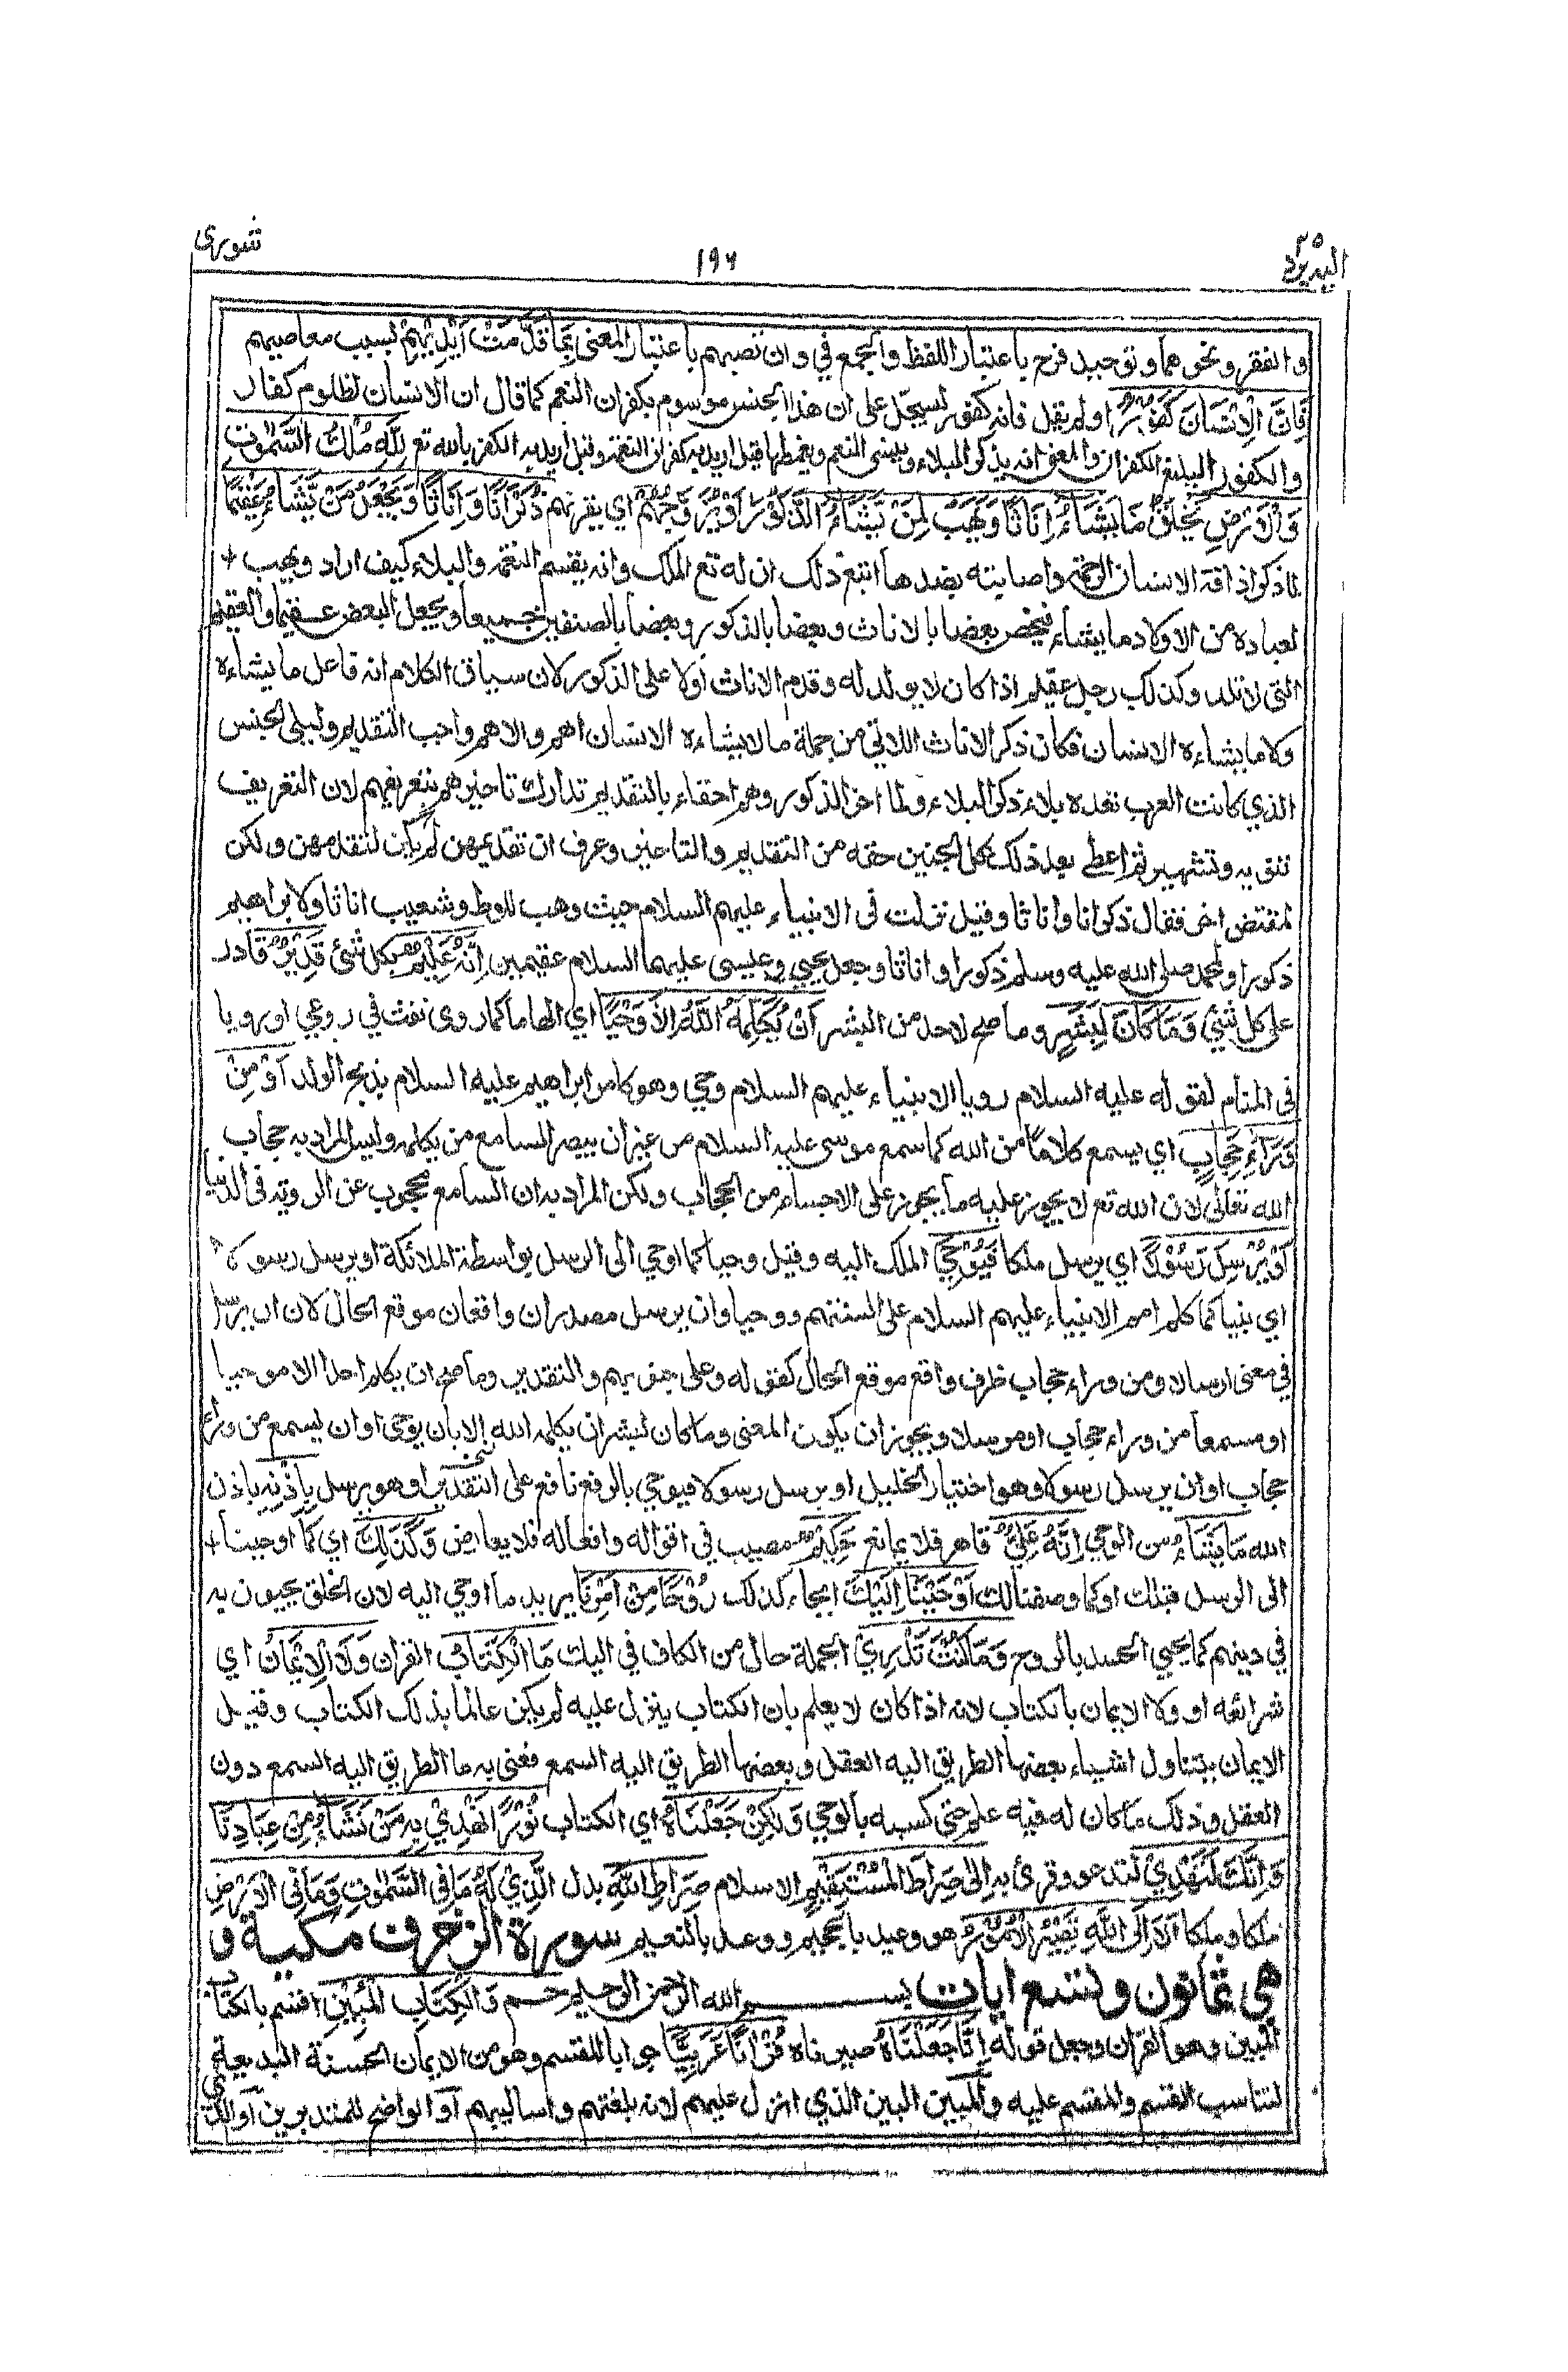 اليه يرد ٢٥
١٩٦
شورى
والفقر ونحوهما وتوحيد فرح باعتبار اللفظ والجمع في وان تصبهم باعتبار المعنى بِمَا قَدَّمَتْ اَيْدِيْهِمْ بسبب معاصيهم
فَاِنَّ الْاِنْسَانَ كَفُوْرٌ او لم يقل فانه كفور ليسجل على ان هذا الجنس موسوم بكفران النعم كما قال ان الانسان لظلوم كفار
والكفور البليغ الكفران والمعنى انه يذكر البلاء وينسى النعم ويغمطها قيل اريد به كفران النعمة وقيل اريد به الكفر بالله تع لِلّٰهِ مُلْكُ السَّمٰوٰتِ
وَالْاَرْضِ يَخْلُقُ مَا يَشَاءُ يَهَبُ لِمَنْ يَّشَاءُ اِنَاثًا وَيَهَبُ لِمَنْ يَّشَاءُ الذُّكُوْرَ اَوْ يُزَوِّجُهُمْ اي يقرنهم ذُكْرَانًا وَّاِنَاثًا وَيَجْعَلُ مَنْ يَّشَاءُ عَقِيْمًا
لما ذكر اذاقة الانسان الرحمة واصابته بضدها اتبع ذلك ان له تع الملك وانه يقسم النعمة والبلاء كيف اراد ويهب
لعباده من الاولاد ما يشاء فيخص بعضا بالاناث وبعضا بالذكور وبعضا بالصنفين جميعا ويجعل البعض عقيما والعقيم
التي لا تلد وكذلك رجل عقيم اذا كان لا يولد له وقدم الاناث اولا على الذكور لان سياق الكلام انه فاعل ما يشاءه
لا ما يشاءه الانسان فكان ذكر الاناث اللاتي من جملة ما لا يشاءه الانسان اهم والاهم واجب التقديم وليلي الجنس
الذي كانت العرب تعده بلاء ذكر البلاء ولما اخر الذكور وهم احقاء بالتقديم تدارك تاخيرهم بتعريفهم لان التعريف
تنويه وتشهير ثم اعطى بعد ذلك كلا الجنسين حقه من التقديم والتاخير وعرف ان تقديمهن لم يكن لتقدمهن ولكن
لمقتض اخر فقال ذكرانا واناثا وقيل نزلت في الانبياء عليهم السلام حيث وهب للوط وشعيب اناثا ولابراهيم
ذكورا ولمحمد صلى الله عليه وسلم ذكورا واناثا وجعل يحيى وعيسى عليهما السلام عقيمين اِنَّهُ عَلِيْمٌ بكل شئ قَدِيْرٌ قادر
على كل شئ وَمَا كَانَ لِبَشَرٍ وما صح لاحد من البشر اَنْ يُّكَلِّمَهُ اللّٰهُ اِلَّا وَحْيًا اي الهاما كما روى نفث في روعي او رويا
في المنام لقوله عليه السلام رويا الانبياء عليهم السلام وحي وهو كامر ابراهيم عليه السلام بذبح الولد اَوْ مِنْ
وَّرَاءِ حِجَابٍ اي يسمع كلاما من الله كما سمع موسى عليه السلام من غير ان يبصر السامع من يكلمه وليس المراد به حجاب
الله تعالى لان الله تع لا يجوز عليه ما يجوز على الاجسام من الحجاب ولكن المراد به ان السامع محجوب عن الروية في الدنيا
اَوْ يُرْسِلَ رَسُوْلًا اي يرسل ملكا فَيُوْحِيَ الملك اليه وقيل وحيا كما اوحي الى الرسل بواسطة الملائكة او يرسل رسولا
اي نبيا كما كلم امم الانبياء عليهم السلام على السنتهم ووحيا وان يرسل مصدران واقعان موقع الحال لان ان يرسل
في معنى ارسالا ومن وراء حجاب ظرف واقع موقع الحال كقوله وعلى جنوبهم والتقدير وما صح ان يكلم احدا الا موحيا
او مسمعا من وراء حجاب او مرسلا ويجوز ان يكون المعنى وما كان لبشر ان يكلمه الله الا بان يوحي او ان يسمع من وراء
حجاب او ان يرسل رسولا وهو اختيار الخليل او يرسل رسولا فيوحي بالرفع نافع على التقدير او هو يرسل بِاِذْنِهٖ باذن
الله مَا يَشَاءُ من الوحي اِنَّهُ عَلِيٌّ قاهر فلا يمانع حَكِيْمٌ مصيب في اقواله وافعاله فلا يعارض وَكَذٰلِكَ اي كما اوحينا
الى الرسل قبلك او كما وصفنا لك اَوْحَيْنَا اِلَيْكَ ايحاء كذلك رُوْحًا مِنْ اَمْرِنَا يريد ما اوحي اليه لان الخلق يحيون به
في دينهم كما يحيي الجسد بالروح وَمَا كُنْتَ تَدْرِيْ الجملة حال من الكاف في اليك مَا الْكِتَابُ القران وَلَا الْاِيْمَانُ اي
شرائعه او ولا الايمان بالكتاب لانه اذا كان لا يعلم بان الكتاب ينزل عليه لم يكن عالما بذلك الكتاب وقيل
الايمان يتناول اشياء بعضها الطريق اليه العقل وبعضها الطريق اليه السمع فعني به ما الطريق اليه السمع دون
العقل وذلك ما كان له فيه علم حتى كسبه بالوحي وَلٰكِنْ جَعَلْنَاهُ اي الكتاب نُوْرًا نَهْدِيْ بِهٖ مَنْ نَشَاءُ مِنْ عِبَادِنَا
وَاِنَّكَ لَتَهْدِيْ لتدعو وقرئ به اِلٰى صِرَاطٍ مُسْتَقِيْمٍ الاسلام صِرَاطِ اللّٰهِ بدل الَّذِيْ لَهُ مَا فِي السَّمٰوٰتِ وَمَا فِي الْاَرْضِ
ملكا وملكا اَلَا اِلَى اللّٰهِ تَصِيْرُ الْاُمُوْرُ هو وعيد بالجحيم ووعد بالنعيم سورة الزخرف مكية و
هي ثمانون وتسع ايات بسم الله الرحمن الرحيم حم وَالْكِتَابِ الْمُبِيْنِ اقسم بالكتاب
المبين وهو القران وجعل قوله اِنَّا جَعَلْنَاهُ صيرناه قُرْاٰنًا عَرَبِيًّا جوابا للقسم وهو من الايمان الحسنة البديعة
لتناسب القسم والمقسم عليه والمبين البين الذي انزل عليهم لانه بلغتهم واساليبهم او الواضح للمتدبرين او الذي